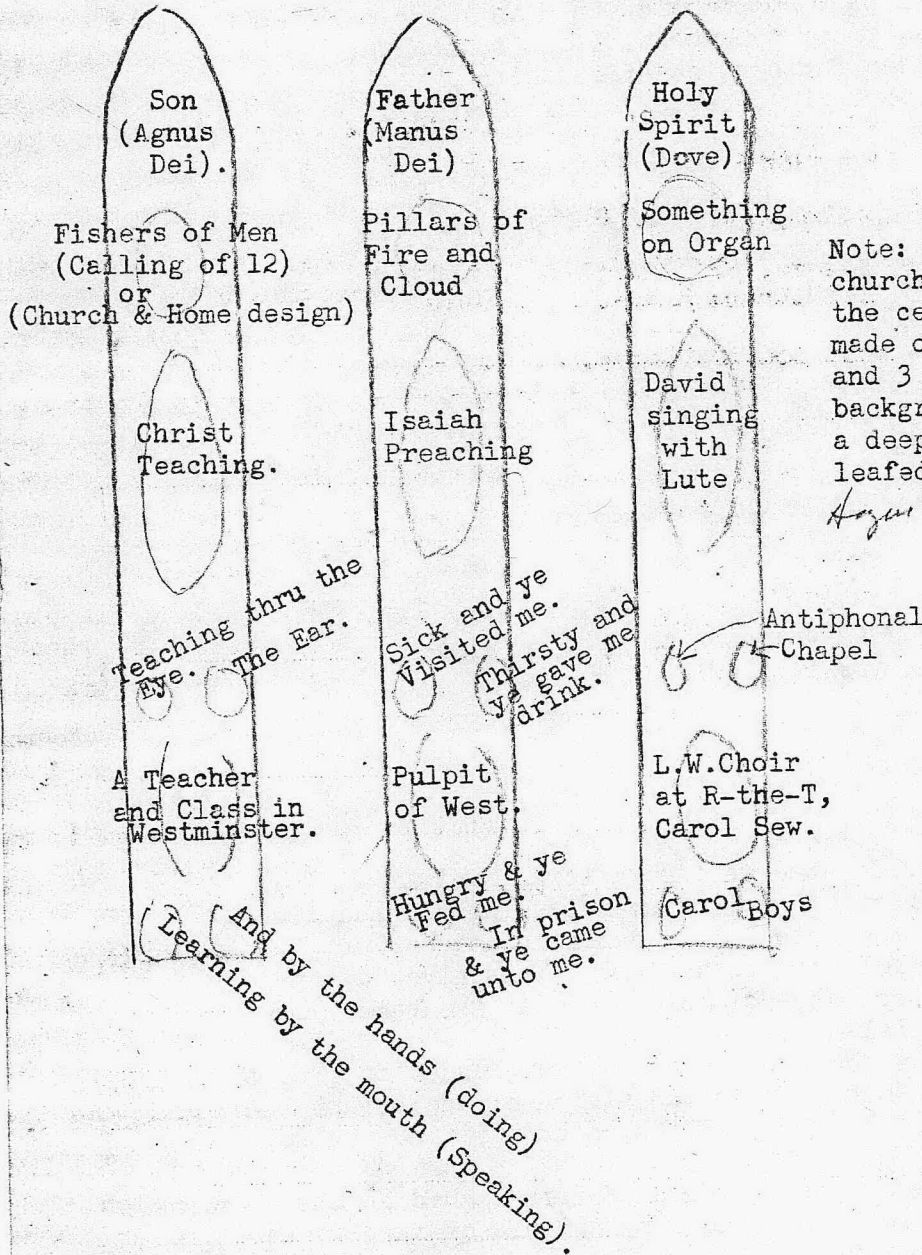 Son
(Agnus
Dei).
Fishers of Men
(Calling of 12)
or
(Church & Home design)
Christ
Teaching.
Teaching thru the
Eye.
The Ear.
A Teacher
and Class in
Westminster.
Learning by the mouth (Speaking).
And by the hands (doing)
Father
(Manus
Dei)
Pillars of
Fire and
Cloud
Isaiah
Preaching
Sick and ye
Visited me.
Thirsty and
ye gave me
drink.
Pulpit
of West.
Hungry & ye
Fed me.
In prison
& ye came
unto me.
Holy
Spirit
(Dove)
Something
on Organ
David
singing
with
Lute
Antiphonal
Chapel
L.W.Choir
at R-the-T,
Carol Sew.
Carol Boys
Note:
church
the ce
made o
and 3
backgr
a deep
leafed